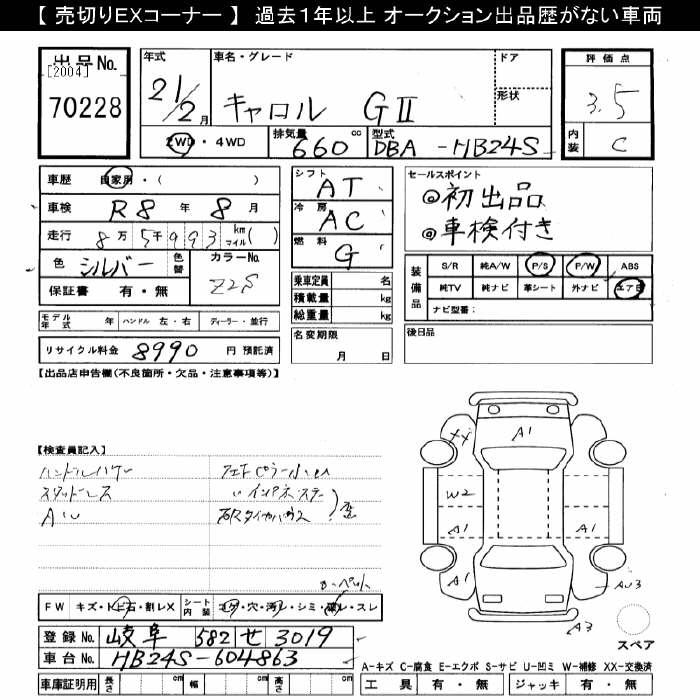 【 売切りEXコーナー 】 過去１年以上 オークション出品歴がない車両
出品No.
[2004]
70228
年式
21/2月
車名・グレード
キャロル GⅡ
ドア
形状
2WD・4WD
排気量 660 cc
型式 DBA -HB24S
評価点
3.5
内装 C
車歴 自家用・( )
車検 R8 年 8 月
走行 8万5千993 km マイル( )
色 シルバー 色替
カラーNo. Z2S
保証書 有・無
シフト AT
冷房 AC
燃料 G
乗車定員 名
積載量 kg
総重量 kg
セールスポイント
◎初出品
◎車検付き
装備品
S/R 純A/W P/S P/W ABS
純TV 純ナビ 革シート 外ナビ エアB
ナビ型番:
モデル年式 年 ハンドル 左・右 ディーラー・並行
リサイクル料金 8990 円 預託済
名変期限
月 日
後日品
【出品店申告欄(不良箇所・欠品・注意事項等)】
【検査員記入】
スタッドレス
AW
XX
A1
W2
A1
A1
A1
AU3
A3
スペア
FW キズ・トビ石・割レX
シート内装 コゲ・穴・汚レ・シミ・破レ・スレ
登録No. 岐阜 582 せ 3019
車台No. HB24S-604863
車庫証明用 長さ cm 幅 cm 高さ cm
A-キズ C-腐食 E-エクボ S-サビ U-凹ミ W-補修 XX-交換済
工具 有・無 ジャッキ 有・無